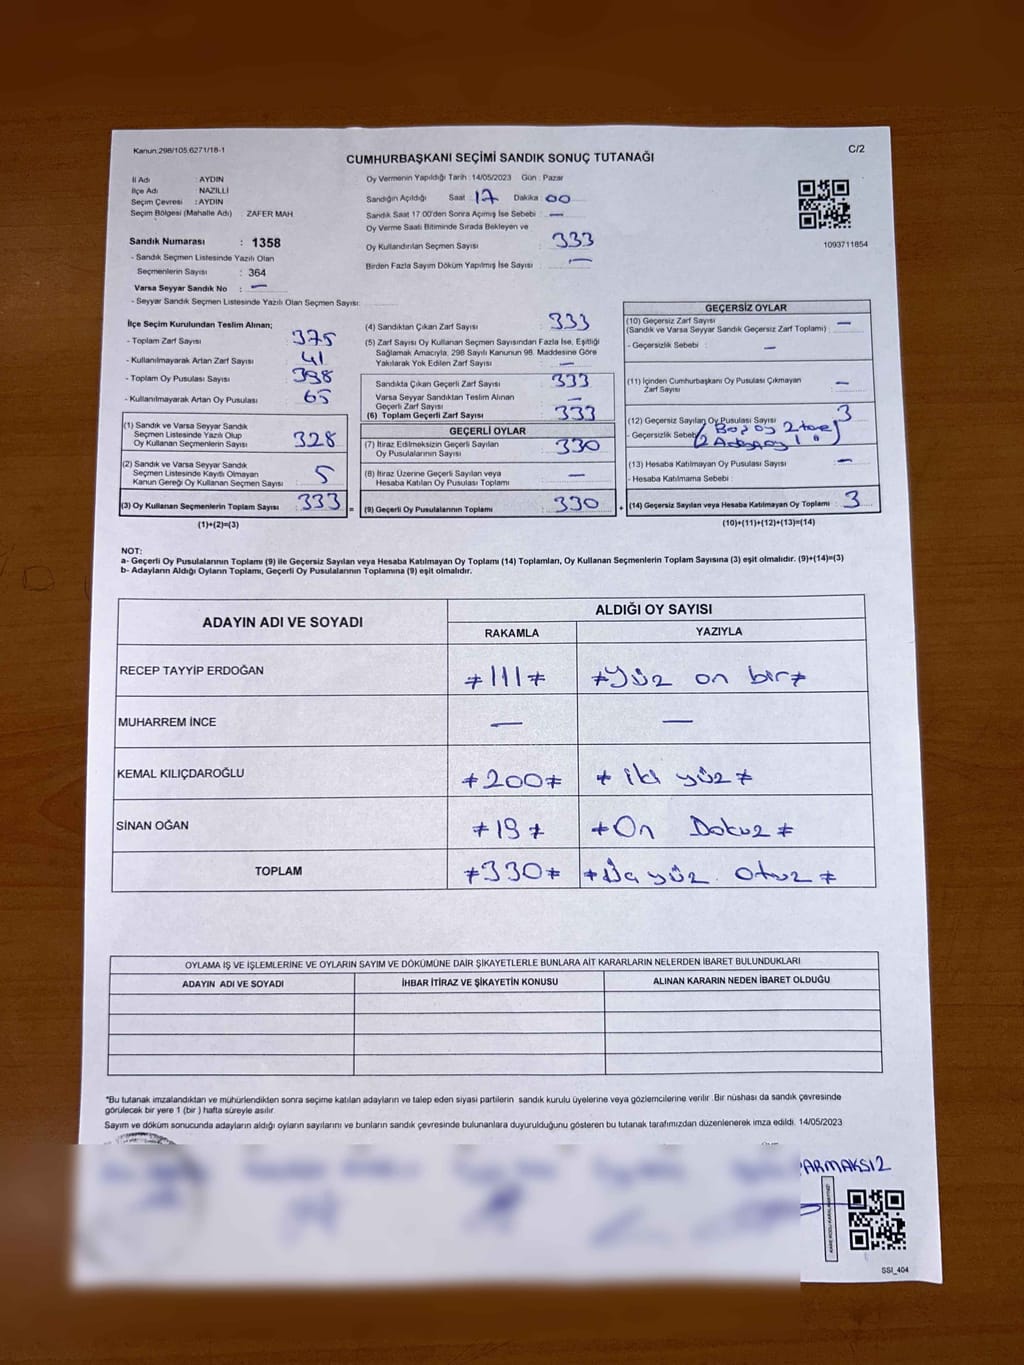 Kanun:298/105.6271/18-1
C/2
CUMHURBAŞKANI SEÇİMİ SANDIK SONUÇ TUTANAĞI
İl Adı : AYDIN
İlçe Adı : NAZİLLİ
Seçim Çevresi : AYDIN
Seçim Bölgesi (Mahalle Adı) : ZAFER MAH
Sandık Numarası : 1358
- Sandık Seçmen Listesinde Yazılı Olan
Seçmenlerin Sayısı : 364
Varsa Seyyar Sandık No : —
- Seyyar Sandık Seçmen Listesinde Yazılı Olan Seçmen Sayısı:
Oy Vermenin Yapıldığı Tarih :14/05/2023 Gün : Pazar
Sandığın Açıldığı Saat 17 Dakika 00
Sandık Saat 17.00'den Sonra Açımış İse Sebebi : —
Oy Verme Saati Bitiminde Sırada Bekleyen ve
Oy Kullandırılan Seçmen Sayısı : 333
Birden Fazla Sayım Döküm Yapılmış İse Sayısı : —
1093711854
İlçe Seçim Kurulundan Teslim Alınan;
- Toplam Zarf Sayısı : 375
- Kullanılmayarak Artan Zarf Sayısı : 41
- Toplam Oy Pusulası Sayısı : 398
- Kullanılmayarak Artan Oy Pusulası : 65
(1) Sandık ve Varsa Seyyar Sandık
Seçmen Listesinde Yazılı Olup
Oy Kullanan Seçmenlerin Sayısı : 328
(2) Sandık ve Varsa Seyyar Sandık
Seçmen Listesinde Kayıtlı Olmayan
Kanun Gereği Oy Kullanan Seçmen Sayısı : 5
(3) Oy Kullanan Seçmenlerin Toplam Sayısı : 333 =
(1)+(2)=(3)
(4) Sandıktan Çıkan Zarf Sayısı : 333
(5) Zarf Sayısı Oy Kullanan Seçmen Sayısından Fazla İse, Eşitliği
Sağlamak Amacıyla, 298 Sayılı Kanunun 98. Maddesine Göre
Yakılarak Yok Edilen Zarf Sayısı : —
Sandıkta Çıkan Geçerli Zarf Sayısı : 333
Varsa Seyyar Sandıktan Teslim Alınan
Geçerli Zarf Sayısı : —
(6) Toplam Geçerli Zarf Sayısı : 333
GEÇERLİ OYLAR
(7) İtiraz Edilmeksizin Geçerli Sayılan
Oy Pusulalarının Sayısı : 330
(8) İtiraz Üzerine Geçerli Sayılan veya
Hesaba Katılan Oy Pusulalarının Toplamı : —
(9) Geçerli Oy Pusulalarının Toplamı : 330 +
GEÇERSİZ OYLAR
(10) Geçersiz Zarf Sayısı
(Sandık ve Varsa Seyyar Sandık Geçersiz Zarf Toplamı) : —
- Geçersizlik Sebebi : —
(11) İçinden Cumhurbaşkanı Oy Pusulası Çıkmayan
Zarf Sayısı : —
(12) Geçersiz Sayılan Oy Pusulası Sayısı : 3
- Geçersizlik Sebebi Boş oy 2 tane
(13) Hesaba Katılmayan Oy Pusulası Sayısı : —
- Hesaba Katılmama Sebebi :
(14) Geçersiz Sayılan veya Hesaba Katılmayan Oy Toplamı : 3
(10)+(11)+(12)+(13)=(14)
NOT:
a- Geçerli Oy Pusulalarının Toplamı (9) ile Geçersiz Sayılan veya Hesaba Katılmayan Oy Toplamı (14) Toplamları, Oy Kullanan Seçmenlerin Toplam Sayısına (3) eşit olmalıdır. (9)+(14)=(3)
b- Adayların Aldığı Oyların Toplamı, Geçerli Oy Pusulalarının Toplamına (9) eşit olmalıdır.
ADAYIN ADI VE SOYADI
ALDIĞI OY SAYISI
RAKAMLA YAZIYLA
RECEP TAYYİP ERDOĞAN ≠111≠ ≠Yüz on bir≠
MUHARREM İNCE — —
KEMAL KILIÇDAROĞLU ≠200≠ ≠ iki yüz ≠
SİNAN OĞAN ≠19≠ ≠On Dokuz ≠
TOPLAM ≠330≠ ≠Üç yüz otuz ≠
OYLAMA İŞ VE İŞLEMLERİNE VE OYLARIN SAYIM VE DÖKÜMÜNE DAİR ŞİKAYETLERLE BUNLARA AİT KARARLARIN NELERDEN İBARET BULUNDUKLARI
ADAYIN ADI VE SOYADI İHBAR İTİRAZ VE ŞİKAYETİN KONUSU ALINAN KARARIN NEDEN İBARET OLDUĞU
*Bu tutanak imzalandıktan ve mühürlendikten sonra seçime katılan adayların ve talep eden siyasi partilerin sandık kurulu üyelerine veya gözlemcilerine verilir .Bir nüshası da sandık çevresinde
görülecek bir yere 1 (bir ) hafta süreyle asılır.
Sayım ve döküm sonucunda adayların aldığı oyların sayılarını ve bunların sandık çevresinde bulunanlara duyurulduğunu gösteren bu tutanak tarafımızdan düzenlenerek imza edildi. 14/05/2023
ARMAKSIZ
SSI_404